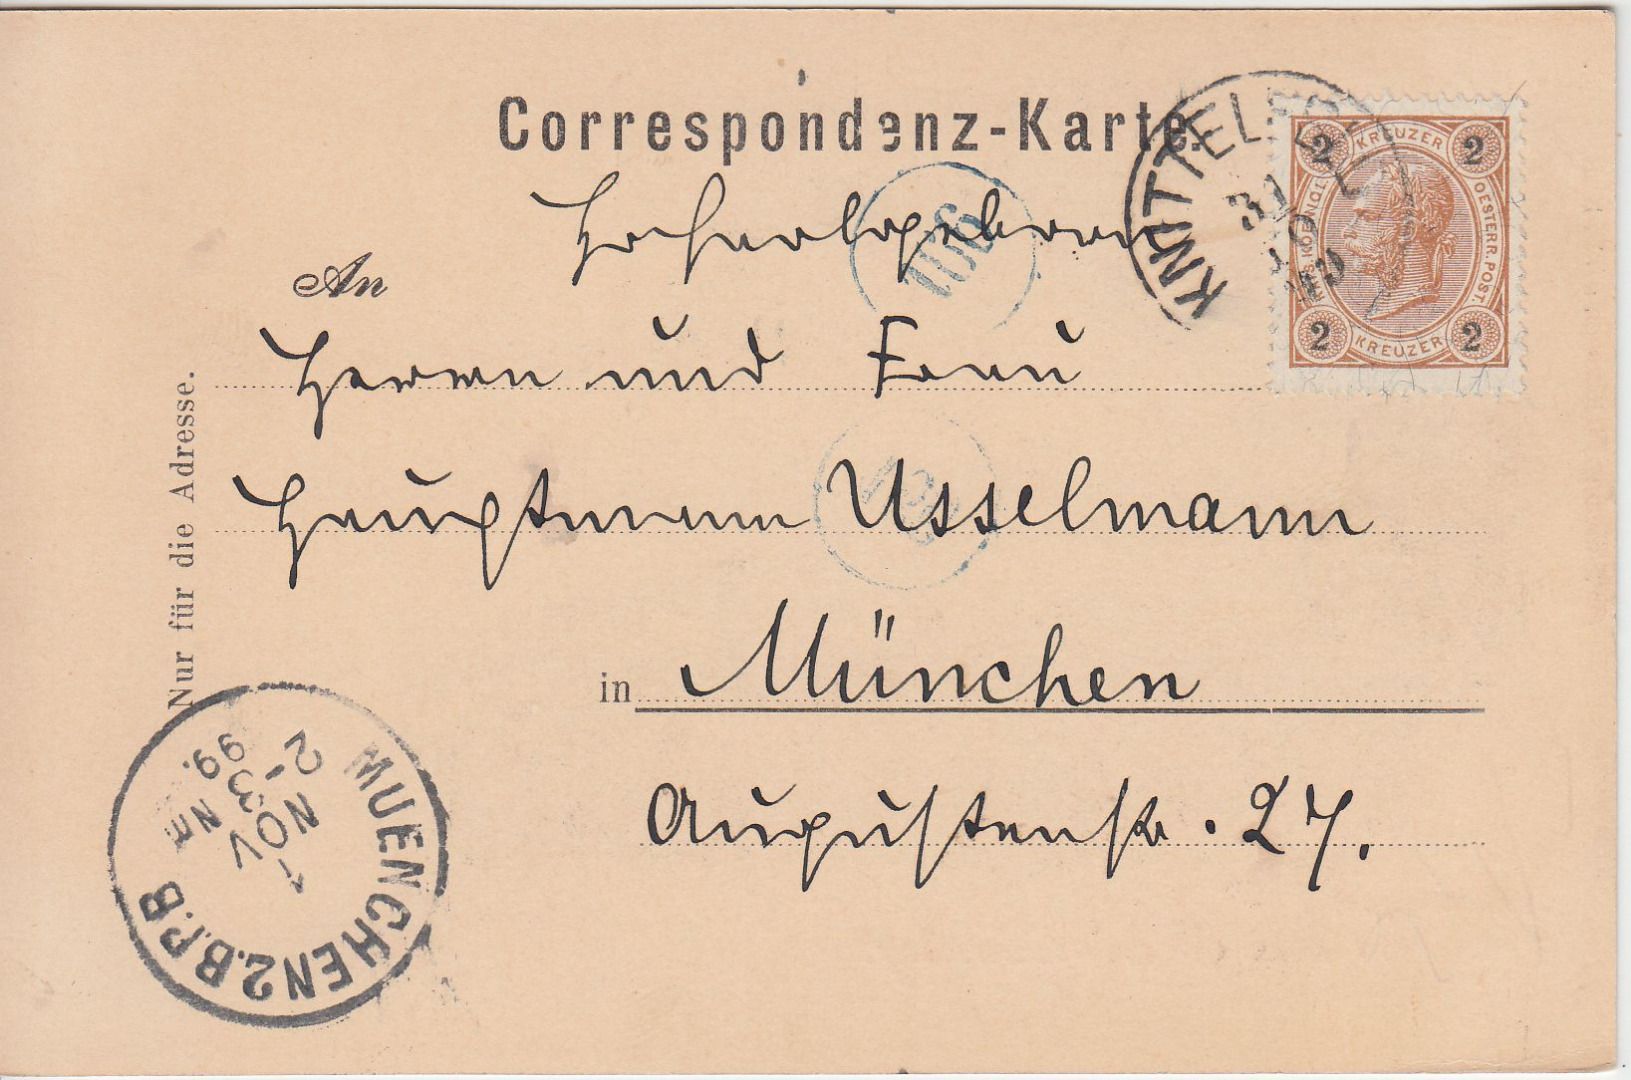 Correspondenz-Karte.
Hochwolgeboren
An
Herrn und Frau
Hauptmann Usselmann
in München
Augustenstr. 27.
Nur für die Adresse.
KNITTELF
31
10
99
106
2 KREUZER 2
KAIS. KOENIGL. OESTERR. POST.
2 KREUZER 2
MUENCHEN 2. B.P.B
2-3 NM.
1 NOV
99.